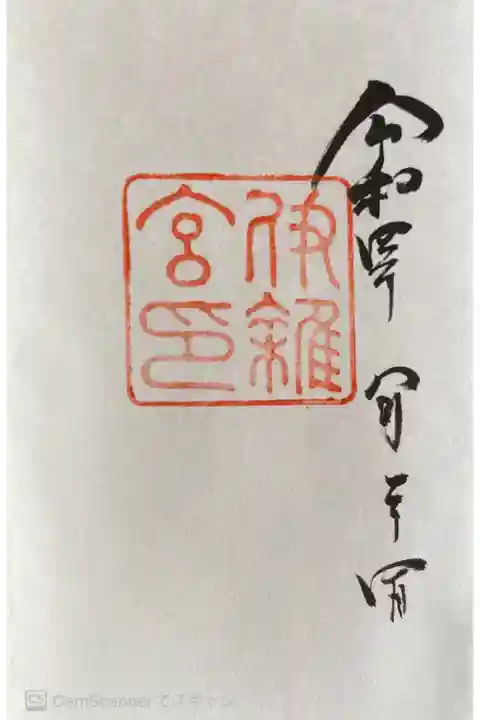 令和四年
伊雜
宮印
CS CamScanner でスキャン